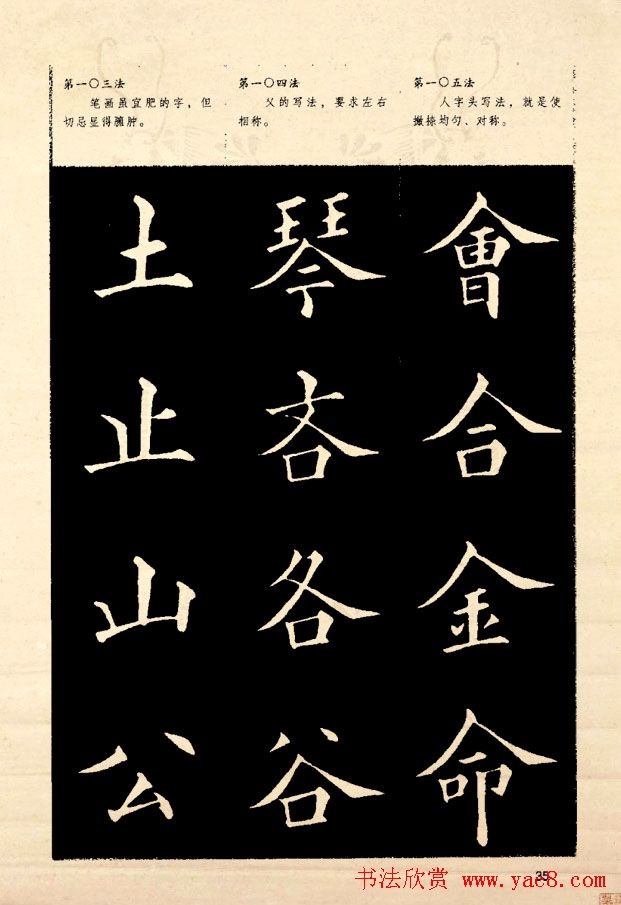 第一〇三法
笔画虽宜肥的字，但
切忌显得臃肿。
第一〇四法
父的写法，要求左右
相称。
第一〇五法
人字头写法，就是使
撇捺均匀、对称。
土 琴 會
止 吝 合
山 各 金
公 谷 命
35
书法欣赏 www.yac8.com